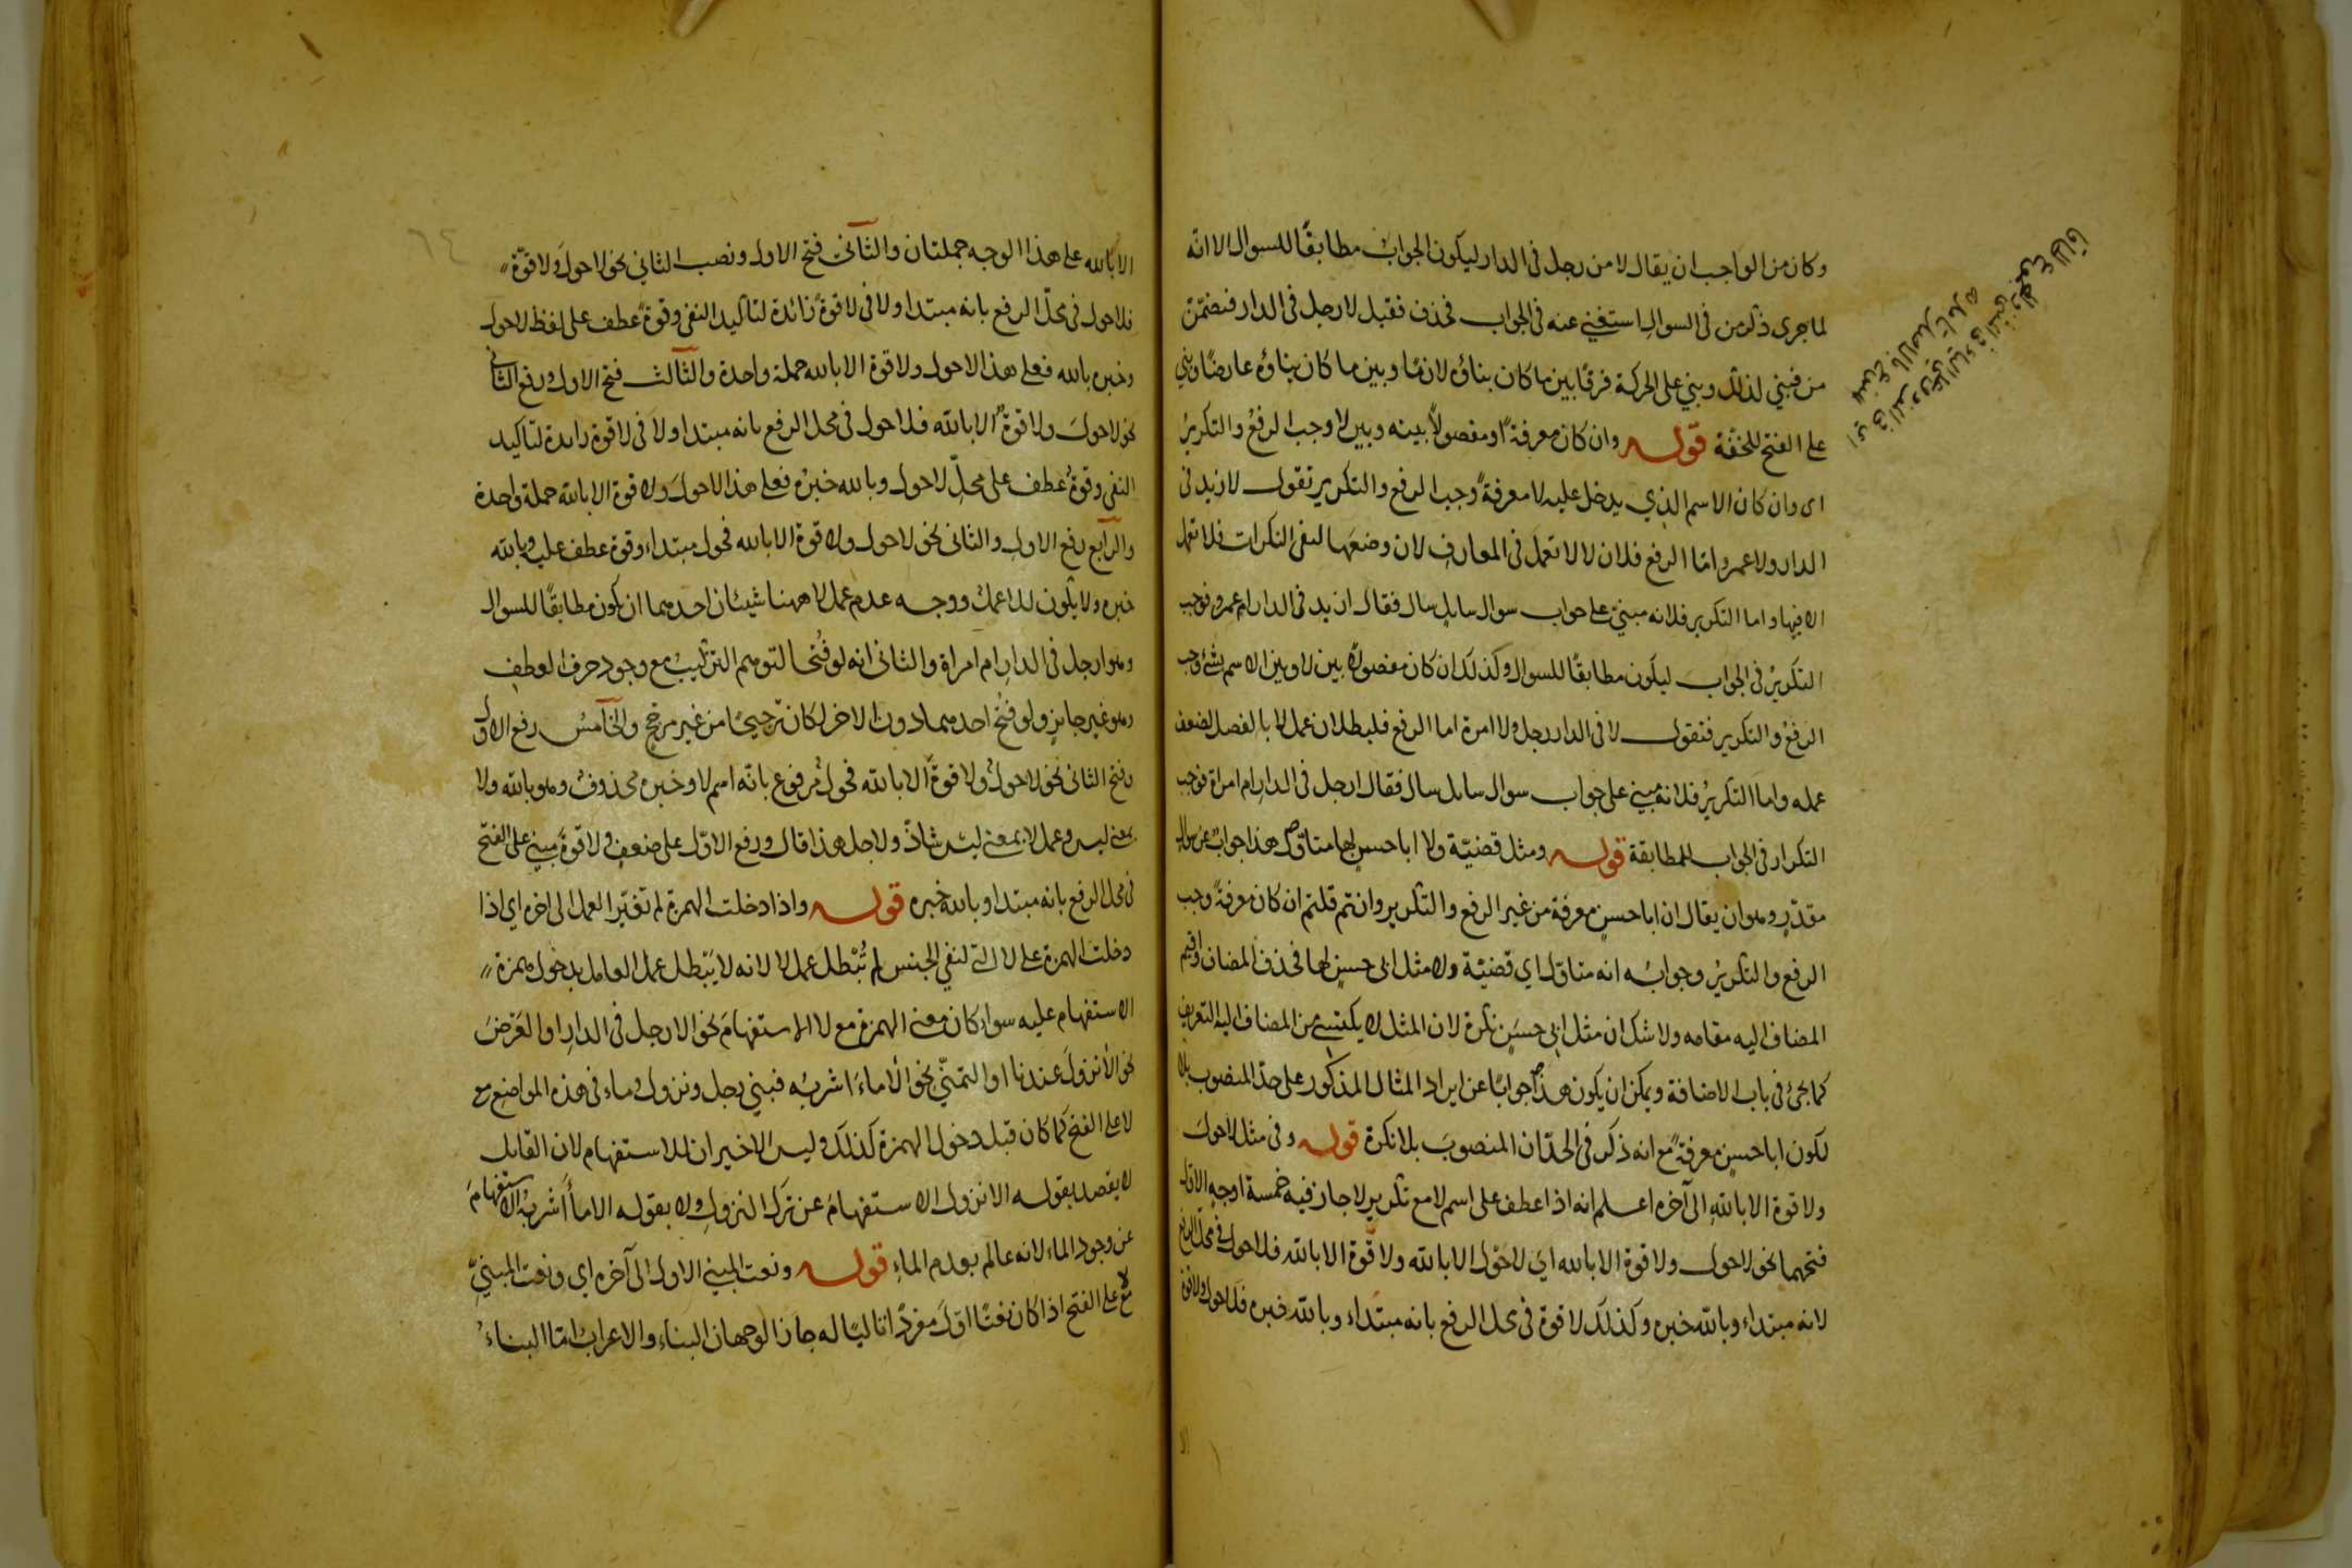 وكان من الواجب ان يقال لا من رجل فى الدار ليكون الجواب مطابقًا للسوال الا انّه
لما جرى ذكر من فى السوالِ استغنى عنه فى الجواب فحذف فقيل لا رجل فى الدار فتضمّن
من فبنى لذلك وبنى على الحركة فرقًا بين ما كان بناؤه لازمًا وبين ما كان بناؤه عارضًا وبنى
على الفتح للخفّة قوله وان كان معرفةً او مفصولًا بينه وبين لا وجب الرفعُ والتكريرُ
اى وان كان الاسم الذي يدخل عليه لا معرفةً وجب الرفع والتكرير تقول لا زيد فى
الدار ولا عمرو امّا الرفع فلان لا لا تعمل فى المعارفِ لان وضعَها لنفى النكرات فلا تعمل
الا فيها واما التكرير فلانه مبنىّ على جواب سوال سايلٍ سال فقال ازيد فى الدار ام عمرو فوجب
التكريرُ فى الجواب ليكون مطابقًا للسوال وكذلك ان كان مفصولًا بين لا وبين الاسم بشئ وجب
الرفعُ والتكرير فتقول لا فى الدار رجل ولا امرة اما الرفع فلبطلان عمل لا بالفصل لضعف
عمله واما التكريرُ فلانه مبنى على جواب سوال سايل سال فقال ارجل فى الدارِ ام امراة فوجب
التكرار فى الجواب للمطابقة قوله ومثل قضيّة ولا اباحسنٍ لها متاوّل هذا جوابٌ عن سوال
مقدّرٍ وهو ان يقال ان اباحسنٍ معرفة من غير الرفع والتكرير وانتم قلتم ان كان معرفةً وجب
الرفع والتكريرُ وجوابُه انه متاوّل اي قضيّة ولا مثل ابى حسنٍ لها فحذف المضاف واقيم
المضاف اليه مقامه ولا شك ان مثل ابى حسنٍ نكرة لان المثل لا يكتسى من المضاف اليه التعريف
كما يجئ فى باب الاضافة ويمكن ان يكون هذا جوابًا عن ايراد المثال المذكور على حدّ المنصوب بلا
لكون اباحسنٍ معرفةً مع انه ذكر فى الحدّ ان المنصوبَ بلا نكرة قوله وفى مثل لا حول
ولا قوة الا باللهِ الى آخره اعلم انه اذا عطف على اسم لا مع تكرير لا جاز فيه خمسة اوجهٍ الاول
فتحهما نحو لا حول ولا قوة الا بالله اي لا حول الا بالله ولا قوة الا بالله فلا حول فى محلّ الرفع
لانه مبتداء وبالله خبره وكذلك لا قوة فى محل الرفع بانه مبتداء وبالله خبره فلا حول ولا قوة
الا بالله على هذا الوجه جملتان والثانى فتح الاول ونصب الثاني نحو لا حول ولا قوّةً
فلا حول فى محلّ الرفع بانه مبتدا ولا فى لا قوةً زائدة لتاكيد النفى وقوةً عطف على لفظ لا حول
وخبره بالله فعلى هذا لا حول ولا قوة الا بالله جملة واحدة والثالث فتح الاول ورفع الثانى
نحو لا حولَ ولا قوةٌ الا بالله فلا حول فى محل الرفع بانه مبتدا ولا فى لا قوة زايدة لتاكيد
النفى وقوةٌ عطف على محلّ لا حول وبالله خبرُه فعلى هذا لا حولَ ولا قوة الا بالله جملة واحدة
والرابع رفع الاول والثانى نحو لا حول ولا قوة الا بالله فحول مبتداء وقوة عطف عليه وبالله
خبره ولا يكون للا عمل ووجه عدم عمل لا ههنا شيئان احدهما ان يكون مطابقًا للسوال
وهو ارجل فى الدارِ ام امراة والثانى انه لو فُتحا لتوهم التركيبُ مع وجود حرف العطفِ
وهو غير جايزٍ ولو فُتح احدهما دون الاخر لكان ترجيحًا من غير مرجّح والخامسُ رفع الاول
وفتح الثانى نحو لا حولٌ ولا قوةَ الا بالله فحولٌ مرفوع بانّه اسم لا وخبره محذوف وهو بالله ولا
بمعنى ليس وعمل لا بمعنى ليسَ شاذّ ولاجل هذا قال ورفع الاوّل على ضعفٍ ولا قوةَ مبنى على الفتح
فى محل الرفع بانه مبتدا وبالله خبره قوله واذا دخلت الهمزة لم تغيّر العمل الى اخره اى اذا
دخلت الهمزة على لا التى لنفى الجنس لم تُبْطل عمل لا لانه لا يَبْطل عمل العامل بدخول همزة
الاستفهام عليه سواء كان معنى الهمزة مع لا الاستفهامَ نحو الا رجل فى الدارِ او العَرْضَ
نحو الا نزولَ عندنا او التمنّي نحو الا ماءَ اشربُه فبنى رجل ونزول وماء فى هذه المواضع مع
لا على الفتح كما كان قبل دخول الهمزة كذلك وليس الاخيران للاستفهام لان القائل
لا يقصد بقوله الا نزول الاستفهامَ عن ترك النزولِ ولا بقوله الا ماءَ اشربُه الاستفهامَ
عن وجود الماء لانه عالم بعدم الماءِ قوله ونعت المبنى الاول الى آخره اى ونعت المبنىِّ
مع لا على الفتح اذا كان نعتًا اوّلَ مفردًا تاليًا له جاز الوجهان البناء والاعراب امّا البناءُ